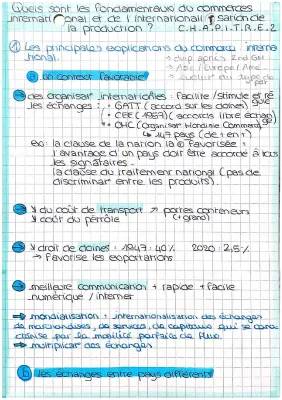 Quels sont les fondamentaux du commerces
international et de l'internationalisation de
la production? C.H.A.P.I.T.R.E.2
① Les principales explications du commerce interna
tional.
• dvp après 2nd GM
a un contexte favorable
→ des organisat° internationales : facilite / stimule et ré
les échanges : • GATT (accord sur les douanes)
• CEE (1957) (accords libre échange)
• OMC (Organisat° Mondiale Commerce)
ex : la clause de la nation la ⊕ favorisée =
l'avantage d'un pays doit être accordé à tous
les signataires.
la clause du traitement national (pas de
discriminat° entre les produits).
→ ↘ du coût de transport ↗ portes conteneurs
↘ coût du pétrole (+ grand)
→ ↘ droit de douanes : 1947 : 40% 2020 : 2,5%
→ favorise les exportations
→ meilleure communication + rapide + facile
numérique / internet
➡ mondialisation : internationalisation des échanges
de marchandises, de services, de capitaux qui se cara
ctérise par la mobilité parfaite de flux.
➡ multiplicat° des échanges
b les échanges entre pays différents